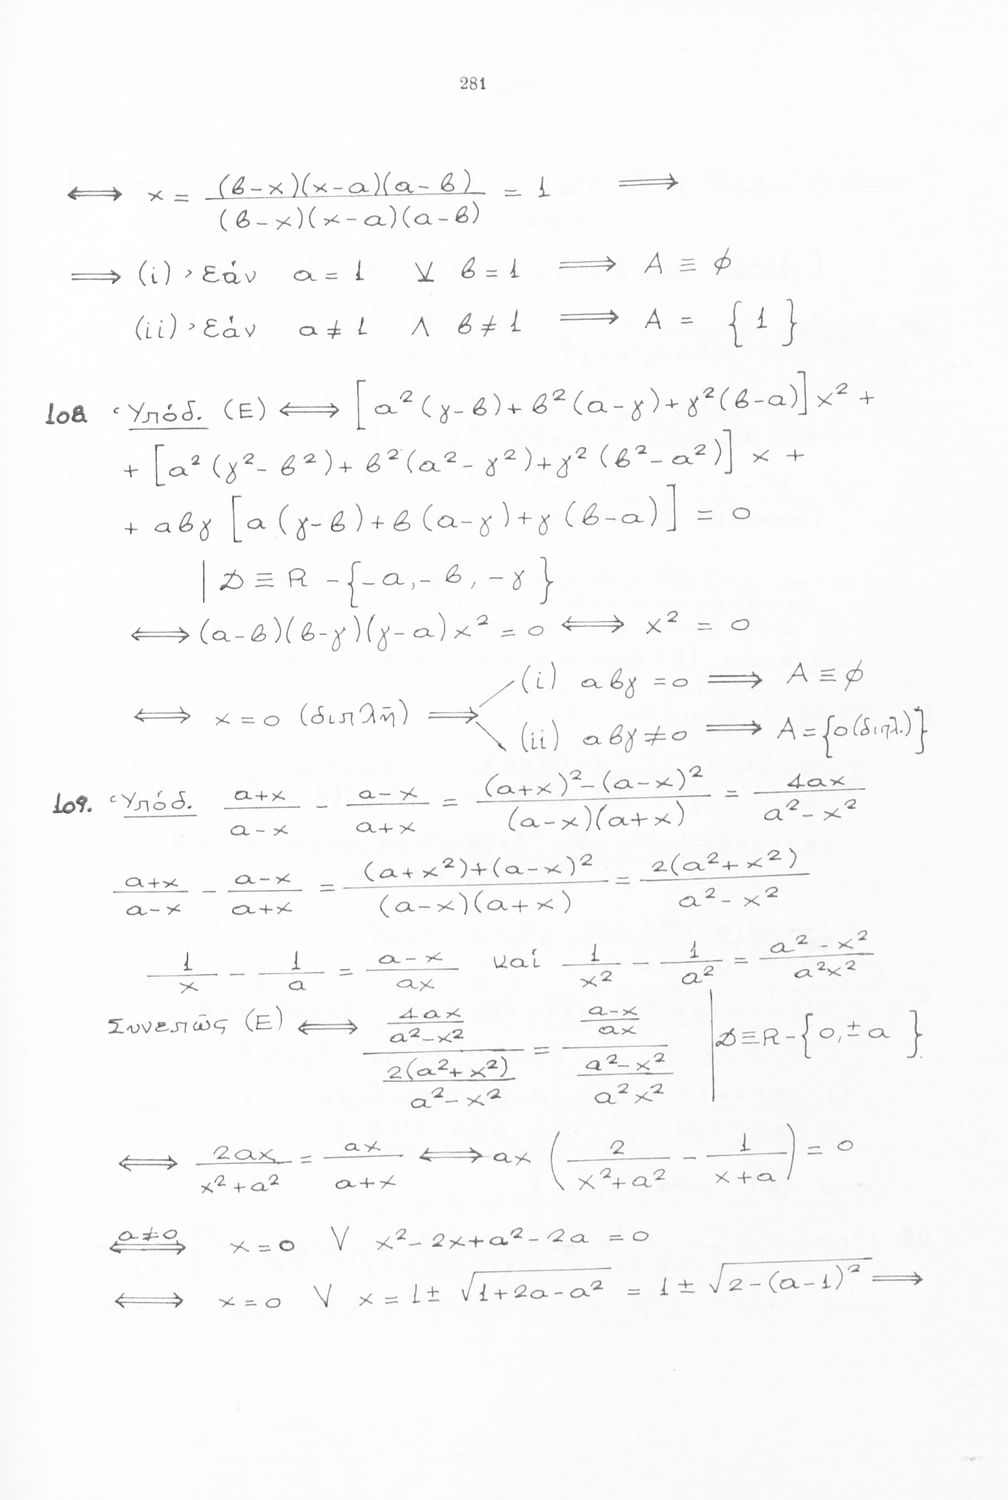 281
⟺ x = (β-x)(x-α)(α-β) / (β-x)(x-α)(α-β) = 1 ⟹
⟹ (i) ʼεάν α = 1 ⊻ β = 1 ⟹ A ≡ ϕ
(ii) ʼεάν α ≠ 1 ∧ β ≠ 1 ⟹ A = {1}
108 ʽΥπόδ. (E) ⟺ [α²(γ-β) + β²(α-γ) + γ²(β-α)] x² +
+ [α²(γ²-β²) + β²(α²-γ²) + γ²(β²-α²)] x +
+ αβγ [α(γ-β) + β(α-γ) + γ(β-α)] = 0
| D ≡ R - {-α, -β, -γ}
⟺ (α-β)(β-γ)(γ-α)x² = 0 ⟺ x² = 0
(i) αβγ = 0 ⟹ A ≡ ϕ
⟺ x = 0 (διπλῆ) ⟹
(ii) αβγ ≠ 0 ⟹ A = {0(διπλ.)}
109. ʽΥπόδ. (α+x)/(α-x) - (α-x)/(α+x) = ((α+x)²-(α-x)²)/((α-x)(α+x)) = 4αx/(α²-x²)
(α+x)/(α-x) - (α-x)/(α+x) = ((α+x²)+(α-x)²)/((α-x)(α+x)) = 2(α²+x²)/(α²-x²)
1/x - 1/α = (α-x)/(αx) καί 1/x² - 1/α² = (α²-x²)/(α²x²)
Συνεπῶς (E) ⟺ (4αx/(α²-x²)) / (2(α²+x²)/(α²-x²)) = ((α-x)/(αx)) / ((α²-x²)/(α²x²)) | D ≡ R - {0, ±α}
⟺ 2αx/(x²+α²) = αx/(α+x) ⟺ αx (2/(x²+α²) - 1/(x+α)) = 0
α≠0 ⟺ x = 0 ∨ x²-2x+α²-2α = 0
⟺ x = 0 ∨ x = 1 ± √(1+2α-α²) = 1 ± √(2-(α-1)²) ⟹